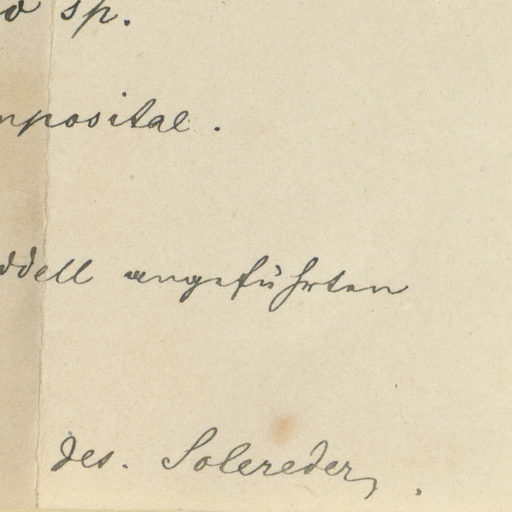 o sp.
mpositae.
ddell angeführten
des. Solereder.